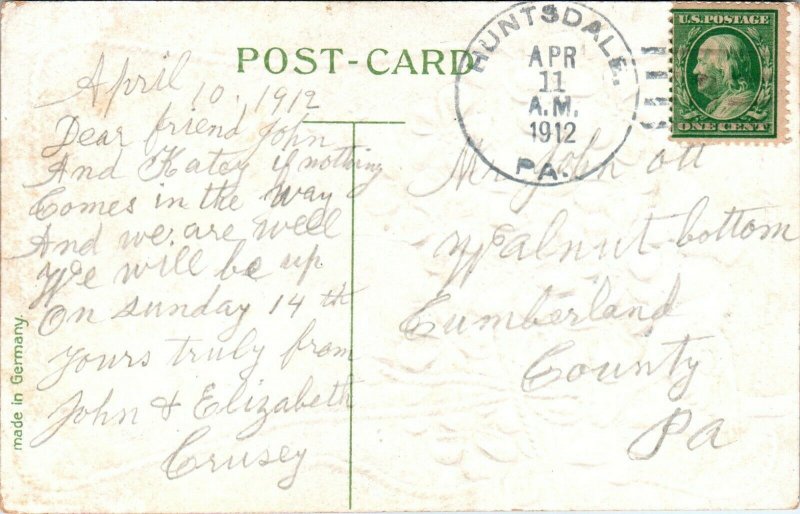 POST-CARD
HUNTSDALE.
APR
11
A.M.
1912
PA.
U.S. POSTAGE
ONE CENT
April 10, 1912
Dear friend John
And Katey if nothing
Comes in the way
And we are well
We will be up
On sunday 14 th
Yours truly from
John & Elizabeth
Crusey
Mr. John Ott
Walnut-bottom
Cumberland
County
Pa
made in Germany.